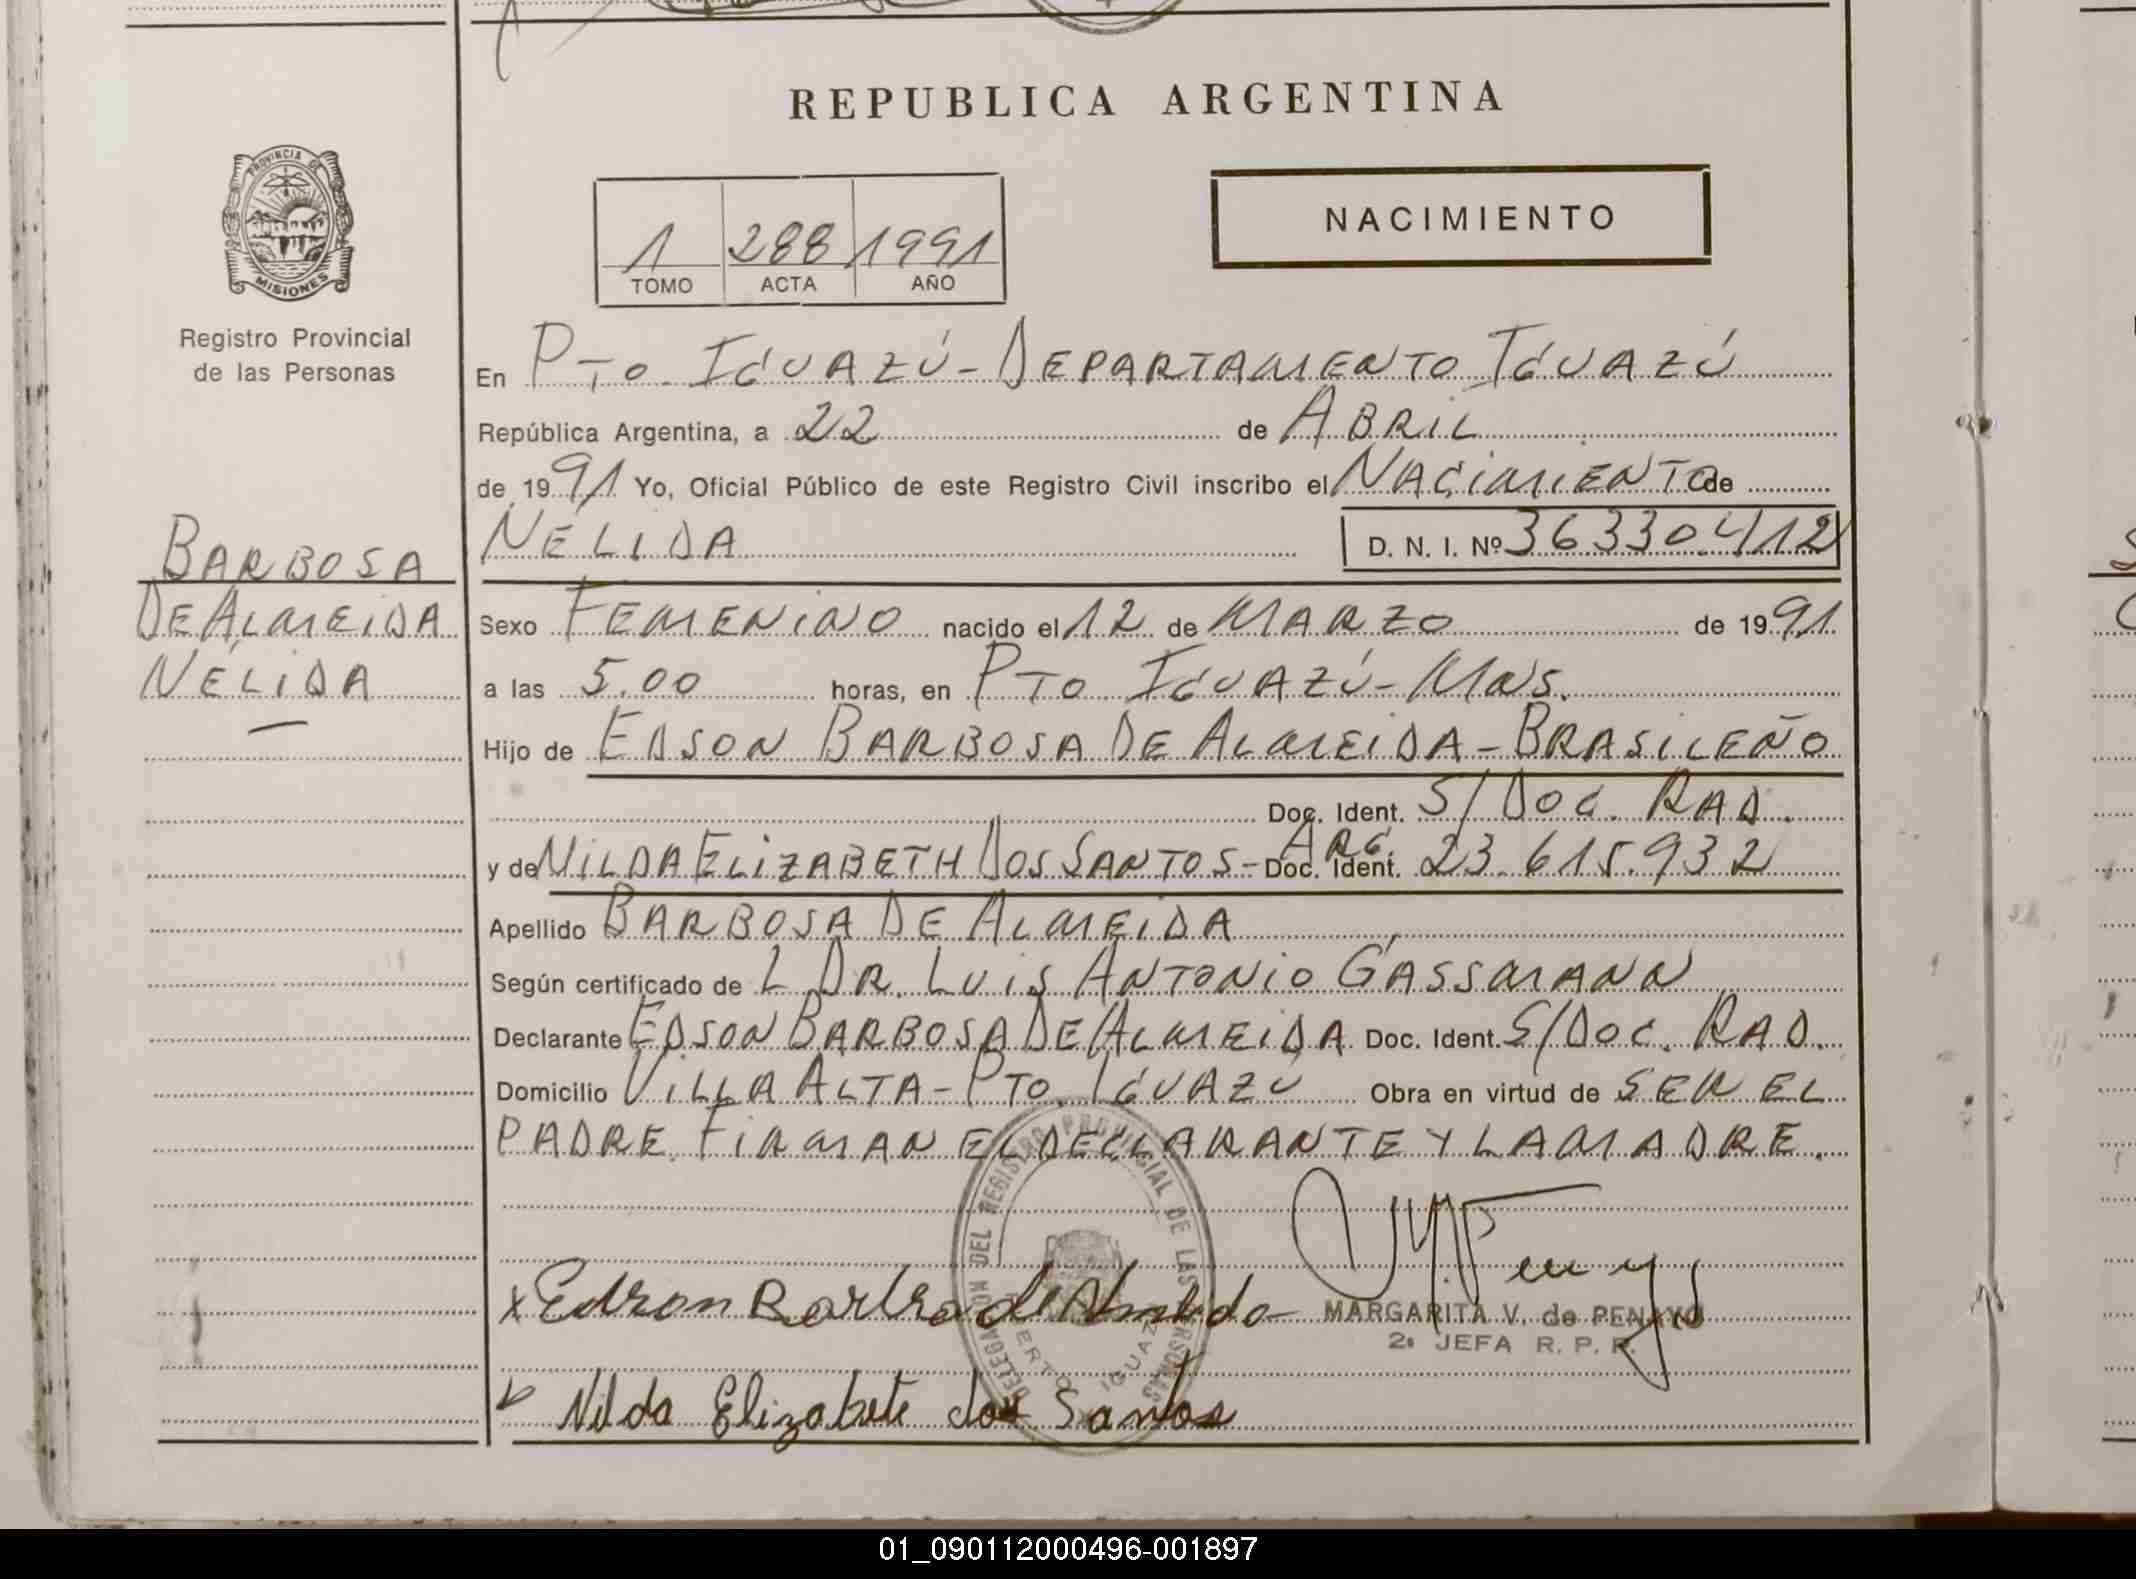 REPUBLICA ARGENTINA
PROVINCIA DE
MISIONES
Registro Provincial
de las Personas
1 288 1991
TOMO ACTA AÑO
NACIMIENTO
En PTO. IGUAZÚ - DEPARTAMENTO IGUAZÚ
República Argentina, a 22 de ABRIL
de 1991 Yo, Oficial Público de este Registro Civil inscribo el NACIMIENTO de
NÉLIDA D. N. I. Nº 36330.412
BARBOSA
DE ALMEIDA
NÉLIDA
Sexo FEMENINO nacido el 12 de MARZO de 1991
a las 5.00 horas, en PTO IGUAZÚ - MNS.
Hijo de EDSON BARBOSA DE ALMEIDA - BRASILEÑO
Doc. Ident. S/DOC. RAD.
y de NILDA ELIZABETH DOS SANTOS - ARG. Doc. Ident. 23.615.932
Apellido BARBOSA DE ALMEIDA
Según certificado de L DR. LUIS ANTONIO GASSMANN
Declarante EDSON BARBOSA DE ALMEIDA Doc. Ident. S/DOC. RAD.
Domicilio VILLA ALTA - PTO. IGUAZÚ Obra en virtud de SER EL
PADRE. FIRMAN EL DECLARANTE Y LA MADRE.
DELEGACION DEL REGISTRO PROVINCIAL DE LAS PERSONAS
PUERTO IGUAZU
x Edson Barbosa de Almeida
MARGARITA V. de PENAYO
2ª JEFA R. P. P.
Nilda Elizabete dos Santos
01_090112000496-001897